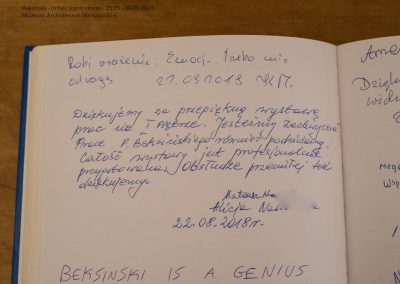 Beksinski - In hoc signo vinces - 20.05 - 30.09.2018
Muzeum Archidiecezji Warszawskiej
Robi wrażenie. Emocji. Trzeba mieć
odwagę 21.09.2018 M.
Dziękujemy za przepiękną wystawę
prac na I piętrze. Jesteśmy zachwyceni
Prace P. Beksińskiego również podziwiamy.
Całość wystawy jest profesjonalnie
przygotowana. Obsłudze przemiłej też
dziękujemy.
Mateusz Na
Alicja Naw
22.08.2018 r.
BEKSINSKI IS A GENIUS
Ama
Dzięku
wido
Mega
wsp